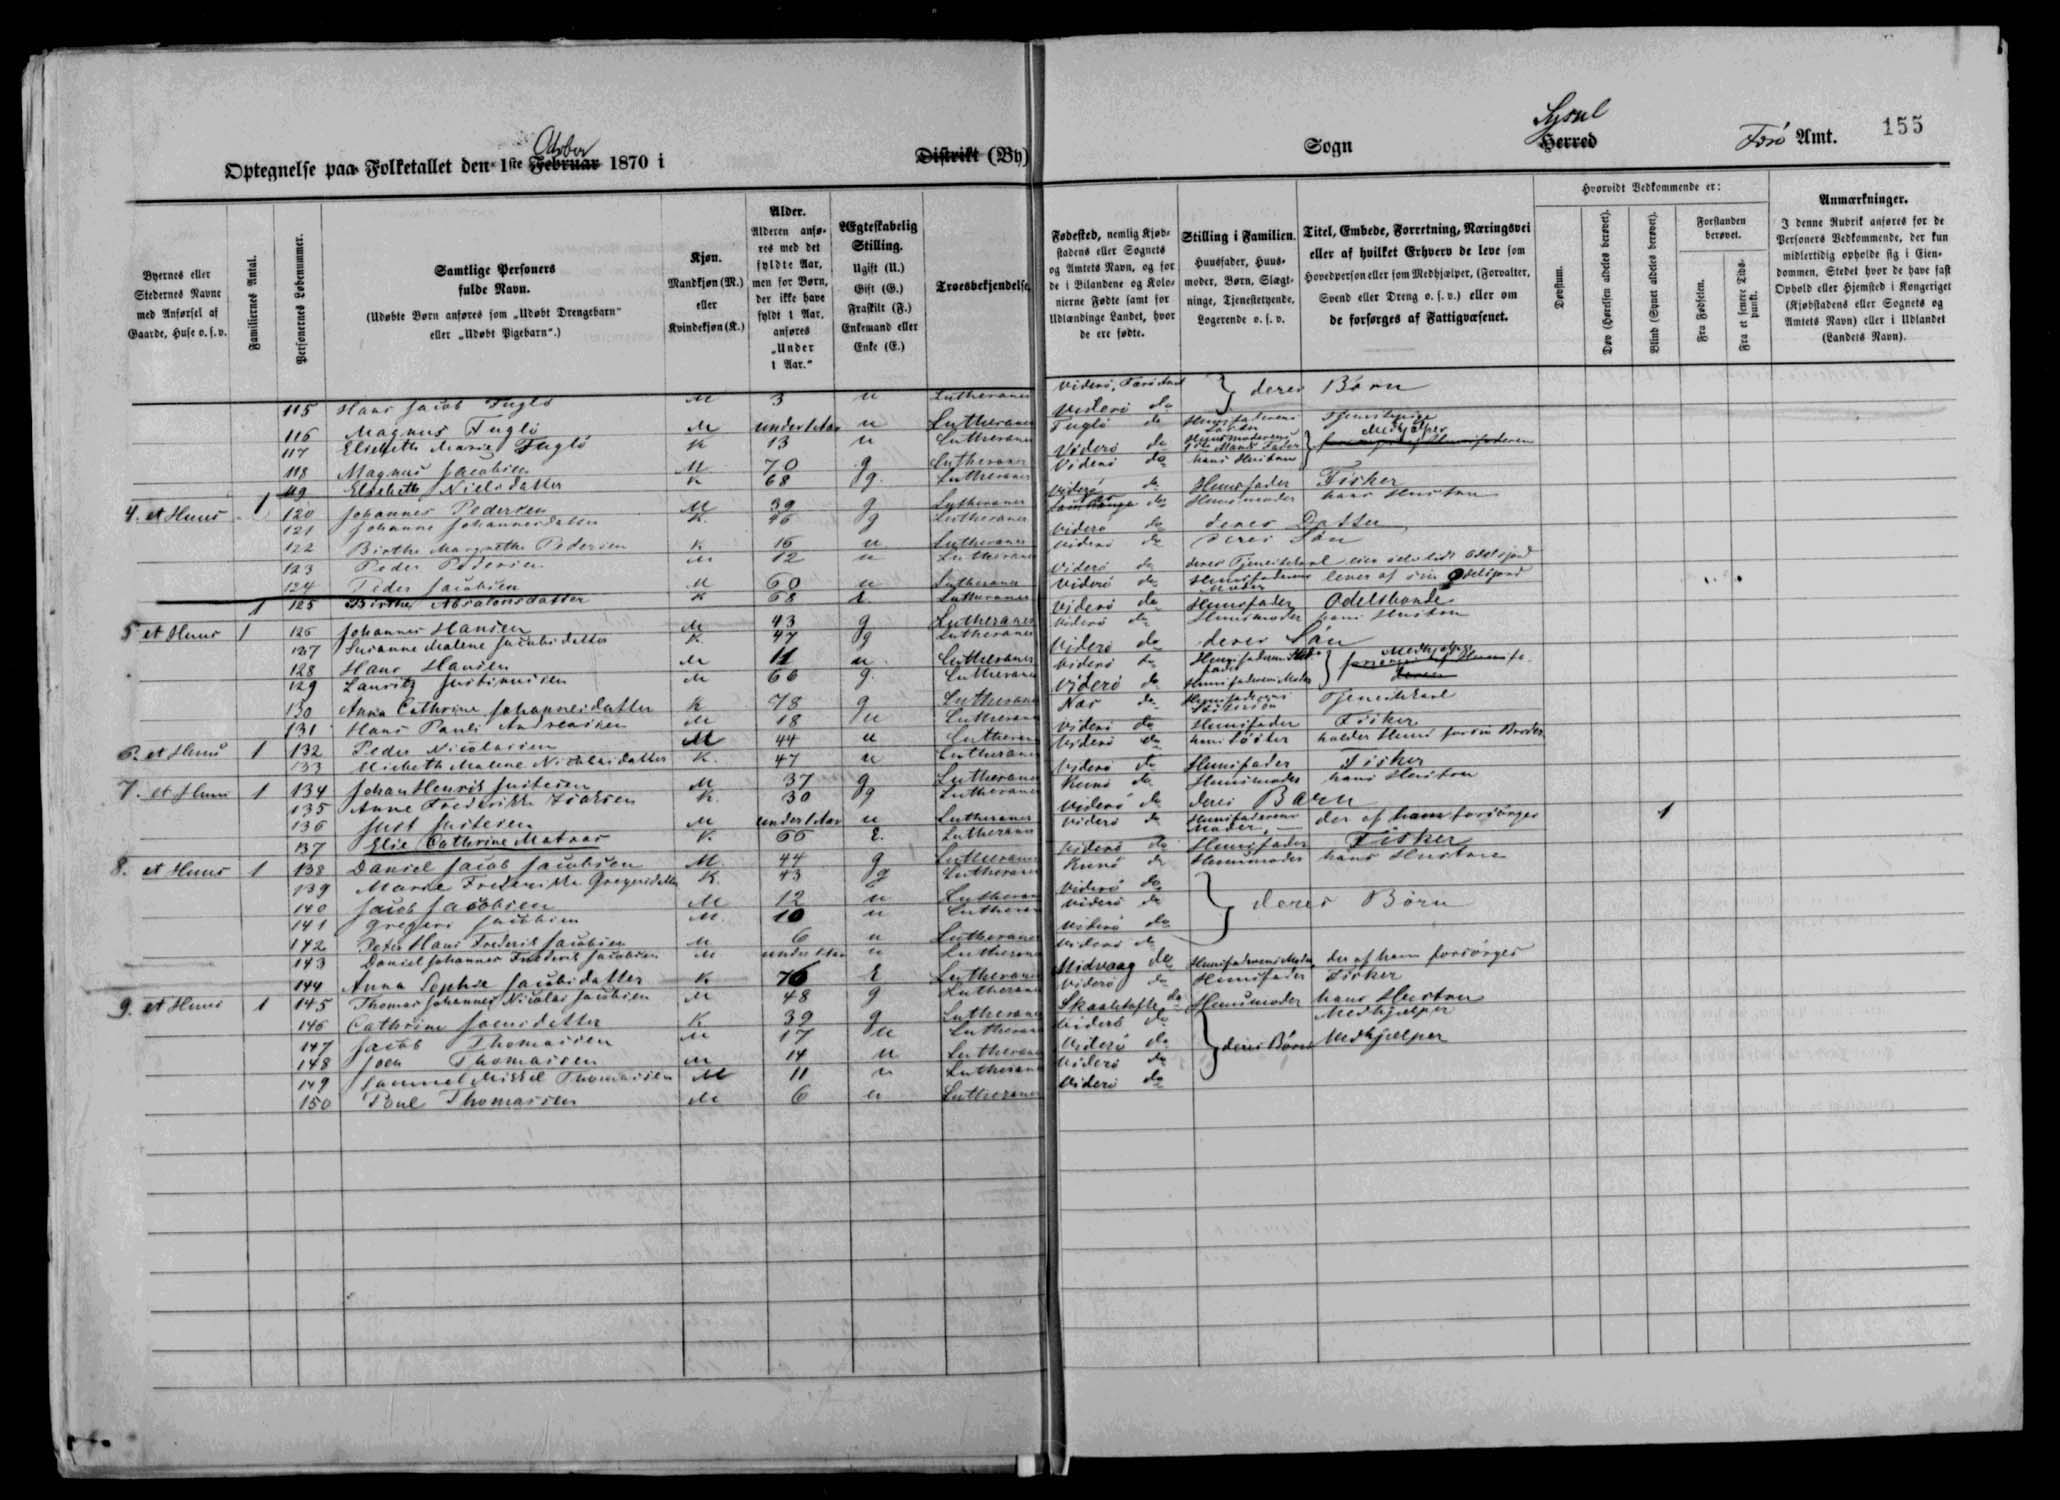 Optegnelse paa Folketallet den 1ste Februar 1870 i
Distrikt (By)
Sogn
Sysul
Herred
Færö Amt.
155
Byernes eller Stedernes Navne med Anførsel af Gaarde, Huse o. s. v.
Familiernes Antal.
Personernes Løbenummer.
Samtlige Personers fulde Navn.
(Udøbte Børn anføres som „Udøbt Drengebarn" eller „Udøbt Pigebarn".)
Kjøn.
Mandkjøn (M.) eller Kvindekjøn (K.)
Alder.
Alderen anføres med det fyldte Aar, men for Børn, der ikke have fyldt 1 Aar, anføres „Under 1 Aar."
Ægteskabelig Stilling.
Ugift (U.) Gift (G.) Fraskilt (F.) Enkemand eller Enke (E.)
Troesbekjendelse
Fødested, nemlig Kjøbstadens eller Sognets og Amtets Navn, og for de i Bilandene og Kolonierne Fødte samt for Udlændinge Landet, hvor de ere fødte.
Stilling i Familien.
Huusfader, Huusmoder, Børn, Slægtninge, Tjenestetyende, Logerende o. s. v.
Titel, Embede, Forretning, Næringsvei eller af hvilket Erhverv de leve som Hovedperson eller som Medhjælper, (Forvalter, Svend eller Dreng o. s. v.) eller om de forsørges af Fattigvæsenet.
Hvorvidt Vedkommende er:
Døvstum.
Døv (Hørelsen aldeles berøvet).
Blind (Synet aldeles berøvet).
Forstanden berøvet.
Fra Fødselen.
Fra et senere Tidspunkt.
Anmærkninger.
I denne Rubrik anføres for de Personers Vedkommende, der kun midlertidig opholde sig i Eiendommen, Stedet hvor de have fast Ophold eller Hjemsted i Kongeriget (Kjøbstadens eller Sognets og Amtets Navn) eller i Udlandet (Landets Navn).
115 Hans Jacob Fuglö M 3 u Lutheraner Viderö, Færö Amt } deres Börn
116 Magnus Fuglö M under 1 Aar u Lutheraner Viderö do
117 Elisbeth Marie Fuglö K 13 u Lutheraner Fuglö do Huusfaderens Tjenestepige
118 Magnus Jacobsen M 70 g Lutheraner Viderö do Huusmoderens Fader Medhjelper
119 Elsebeth Nielsdatter K 68 g. Lutheraner Viderö do hans Hustru
4. et Huus 1 120 Johannes Pedersen M 39 g Lutheraner Viderö do Huusfader Fisker
121 Johanne Johannesdatter K. 46 g Lutheraner do Huusmoder hans Hustru
122 Birthe Margrethe Pedersen K 16 u Lutheraner Viderö do deres Datter
123 Peder Pedersen M 12 u Lutheraner Viderö do deres Sön
124 Peder Jacobsen M 60 u Lutheraner Viderö do deres Tjenestekarl
1 125 Birthe Absalonsdatter K 68 E. Lutheraner Viderö do Huusfaderens Moder lever af sin Odelsjord
5 et Huus 1 126 Johannes Hansen M 43 g Lutheraner Viderö do Huusfader Odelsbonde
127 Susanne Malene Jacobsdatter K 47 g Lutheraner Viderö do Huusmoder hans Hustru
128 Hans Hansen M 11 u. Lutheraner Viderö do deres Sön
129 Lauritz Justinussen M 66 g. Lutheraner Viderö do Huusfaderens Stedfader } Medhjelper
130 Anna Cathrine Johannesdatter K 78 g Lutheraner Viderö do Huusfaderens Moder
131 Hans Pauli Andreasen M 18 u Lutheraner Næs do Huusfaderens Södskendesön Tjenestekarl
6. et Huus 1 132 Peder Nicolaisen M 44 u Lutheraner Viderö do Huusfader Fisker
133 Malene Nicolaisdatter K. 47 u Lutheraner Viderö do hans Söster holder Huus for sin Broder
7. et Huus 1 134 Johan Henrik Justesen M 37 g Lutheraner Viderö do Huusfader Fisker
135 Anne Frederikke Isaksen K. 30 g Lutheraner Kunö do Huusmoder hans Hustru
136 Just Justesen M under 1 Aar u Lutheraner Viderö do deres Barn
137 Elie Cathrine Matras K. 66 E. Lutheraner Viderö do Huusfaderens Moder, der af ham forsörges 1
8. et Huus 1 138 Daniel Jacob Jacobsen M. 44 g Lutheraner Viderö do Huusfader Fisker
139 Marie Frederikke Gregersdatter K. 43 g Lutheraner Kunö do Huusmoder hans Hustru
140 Jacob Jacobsen M 12 u Lutheraner Viderö do } deres Börn
141 Gregers Jacobsen M. 10 u Lutheraner Viderö do
142 Peter Hans Frederik Jacobsen M 6 u Lutheraner Viderö do
143 Daniel Johannes Frederik Jacobsen M under 1 Aar u Lutheraner Viderö do
144 Anna Sophie Jacobsdatter K 76 E Lutheraner Midvaag do Huusfaderens Moder, der af ham forsörges
9. et Huus 1 145 Thomas Johannes Nicolai Jacobsen M 48 g Lutheraner Viderö do Huusfader Fisker
146 Cathrine Joensdatter K 39 g Lutheraner Skaaletofte do Huusmoder hans Hustru
147 Jacob Thomassen M 17 u Lutheraner Viderö do } deres Börn Medhjælper
148 Joen Thomassen M 14 u Lutheraner Viderö do Medhjælper
149 Sammel Mikkel Thomassen M 11 u Lutheraner Viderö do
150 Poul Thomassen M 6 u Lutheraner Viderö do